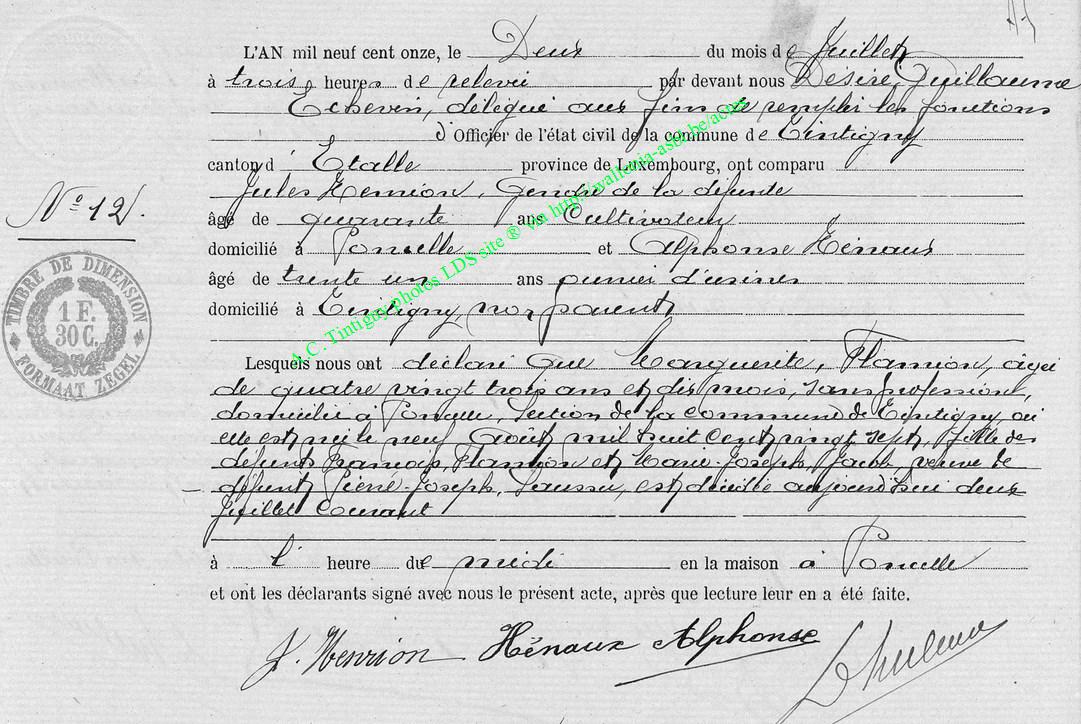 L'AN mil neuf cent onze, le Deux du mois de Juillet
à trois heures de relevée par devant nous Désiré Guillaume
Echevin, délégué aux fins de remplir les fonctions
d'Officier de l'état civil de la commune de Tintigny
canton d'Etalle province de Luxembourg, ont comparu
Jules Henrion, Gendre de la défunte
âgé de quarante ans Cultivateur
N° 12.
domicilié à Poncelle et Alphonse Hénaux
âgé de trente un ans ouvrier d'usines
domicilié à Tintigny, non parent
TIMBRE DE DIMENSION
1 F.
30 C.
FORMAAT ZEGEL
A.C. Tintigny photos LDS site ® via http://wallonia-asbl.be/actes
Lesquels nous ont déclaré que Marguerite, Flamion, âgée
de quatre vingt trois ans et dix mois, sans profession,
domiciliée à Poncelle, Section de la commune de Tintigny, où
elle est née le neuf Août mil huit cent vingt sept, fille des
défunts François, Flamion et Marie-Joseph, Jacob, veuve de
défunt Pierre-Joseph, est décédée aujourd'hui deux
Juillet courant
à l' heure de midi en la maison à Poncelle
et ont les déclarants signé avec nous le présent acte, après que lecture leur en a été faite.
J. Henrion Hénaux Alphonse